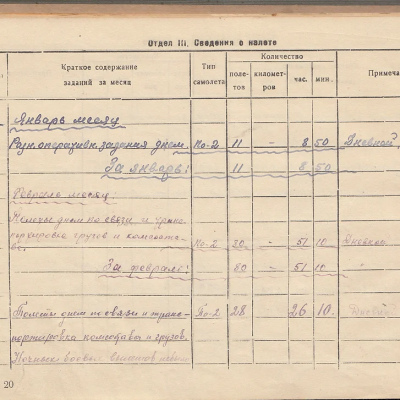 Отдел III. Сведения о налете
Краткое содержание заданий за месяц
Тип самолета
Количество
поле-тов
километ-ров
час.
мин.
Примеча
Январь месяц
Разн. оперативн. задания днем. По-2 11 - 8 50 Дневной
За январь: 11 - 8 50
Февраль месяц:
Полеты днем по связи и транс-
портировке грузов и комсостава
По-2 - 51 10 Дневной
За февраль: - 51 10
Полеты днем по связи и транс- По-2 28 26 10.
портировка комсостава и грузов.
Ночные боевые
20